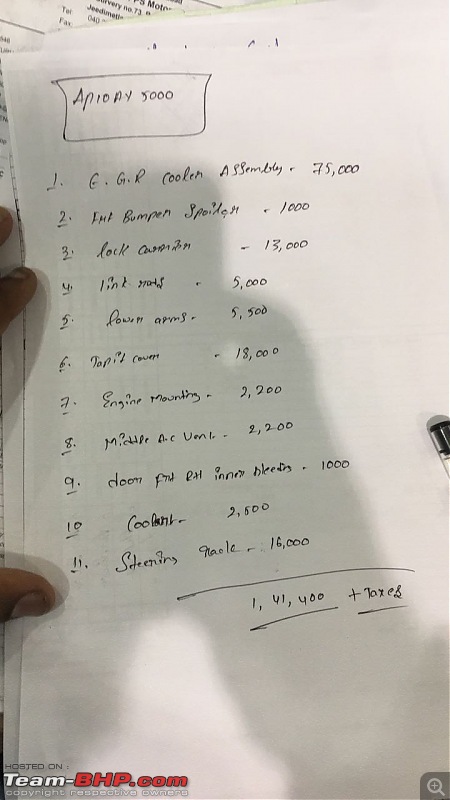 PS Moto
Survery no.73
Jeedimetla
Tel
Fax
040
AP10AY 5000
1. E.G.R Cooler Assembly - 75,000
2. FNT Bumper Spoiler - 1000
3. lock carrier - 13,000
4. link rods - 5,000
5. lower arms - 5,500
6. Tapit cover - 18,000
7. Engine mounting - 2,200
8. Middle A.C Vent - 2,200
9. door FNT RH inner - 1000
10 Coolant - 2,500
11. Steering Rack - 16,000
1,41,400 + Taxes
HOSTED ON :
Team-BHP.com
copyright respective owners